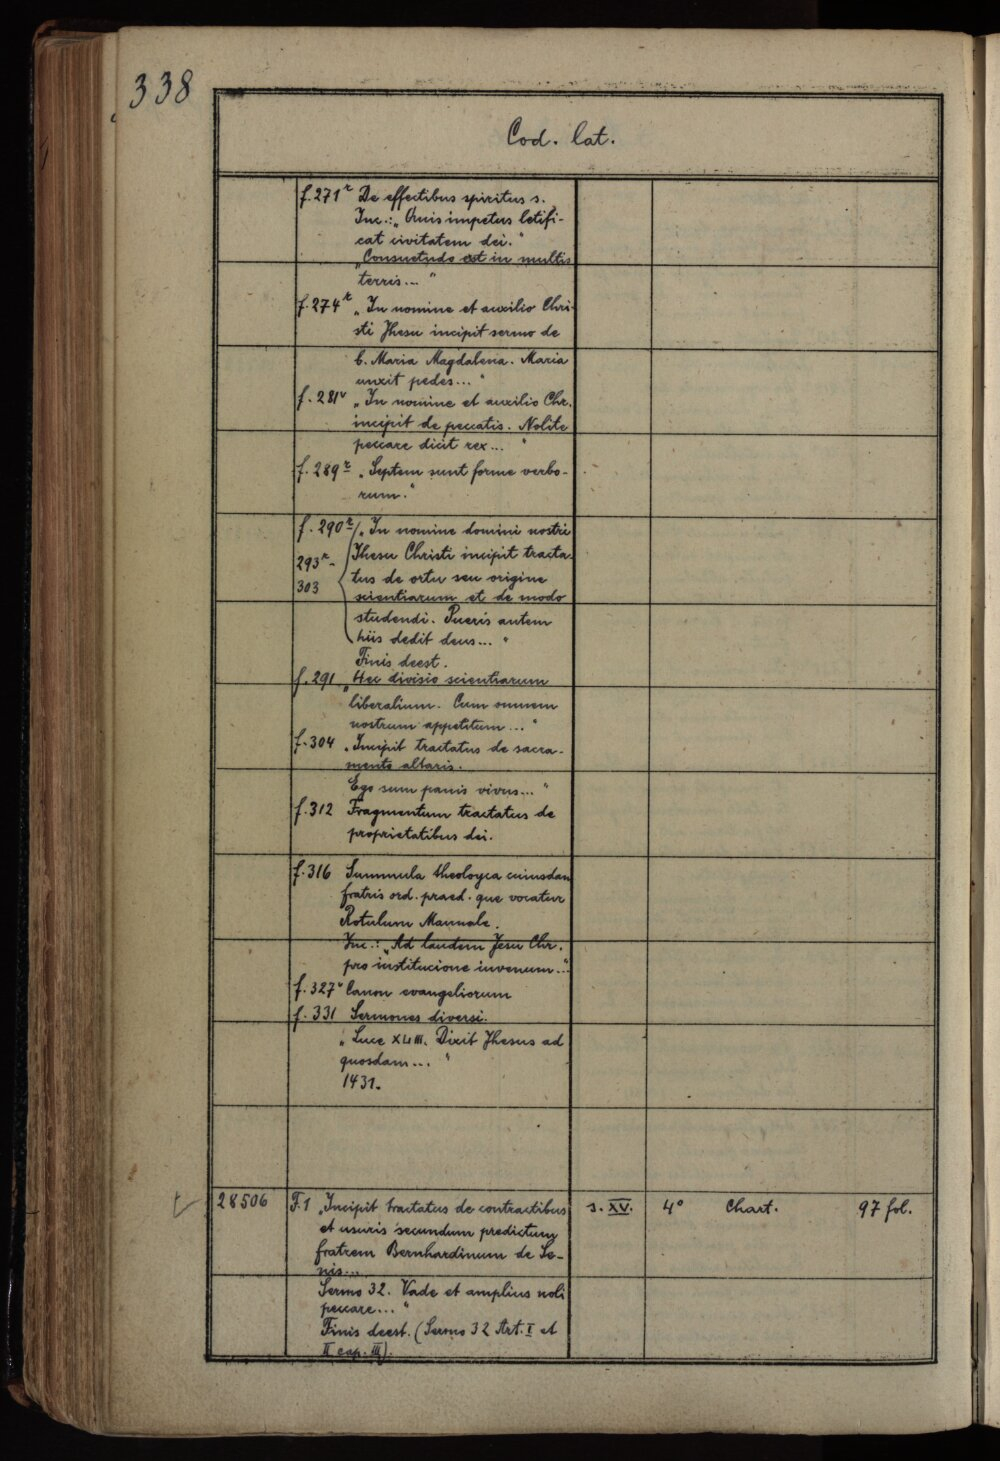 338
Cod. lat.
f. 271r De effectibus spiritus s.
Inc.: „Quis impetus letifi-
cat civitatem dei."
„Consuetudo est in multis
terris..."
f. 274r „In nomine et auxilio Chri-
sti Jhesu incipit sermo de
b. Maria Magdalena. Maria
unxit pedes..."
f. 281v „In nomine et auxilio Chr.
incipit de peccatis. Nolite
peccare dicit rex..."
f. 289r „Septem sunt forme verbo-
rum."
f. 290r/ „In nomine domini nostri
293r- Jhesu Christi incipit tracta-
303 tus de ortu seu origine
scientiarum et de modo
studendi. Pueris autem
hiis dedit deus..."
Finis deest.
f. 291 „Hec divisio scientiarum
liberalium. Cum omnem
nostrum appetitum..."
f. 304 „Incipit tractatus de sacra-
mento altaris.
Ego sum panis vivus..."
f. 312 Fragmentum tractatus de
proprietatibus dei.
f. 316 Summula theologca cuiusdam
fratris ord. praed. que vocatur
Rotulum Manuale.
Inc.: „Ad laudem Jesu Chr.
pro institucione iuvenum..."
f. 327v Canon evangeliorum
f. 331 Sermones diversi.
„Luce XLIII. Dixit Jhesus ad
quosdam..."
1431.
28506 F. 1 „Incipit tractatus de contractibus s. XV. 4° Chart. 97 fol.
et usuris secundum predictum
fratrem Bernhardinum de Se-
nis...
Sermo 32. Vade et amplius noli
peccare..."
Finis deest. (Sermo 32 Art. I et
II cap. III).